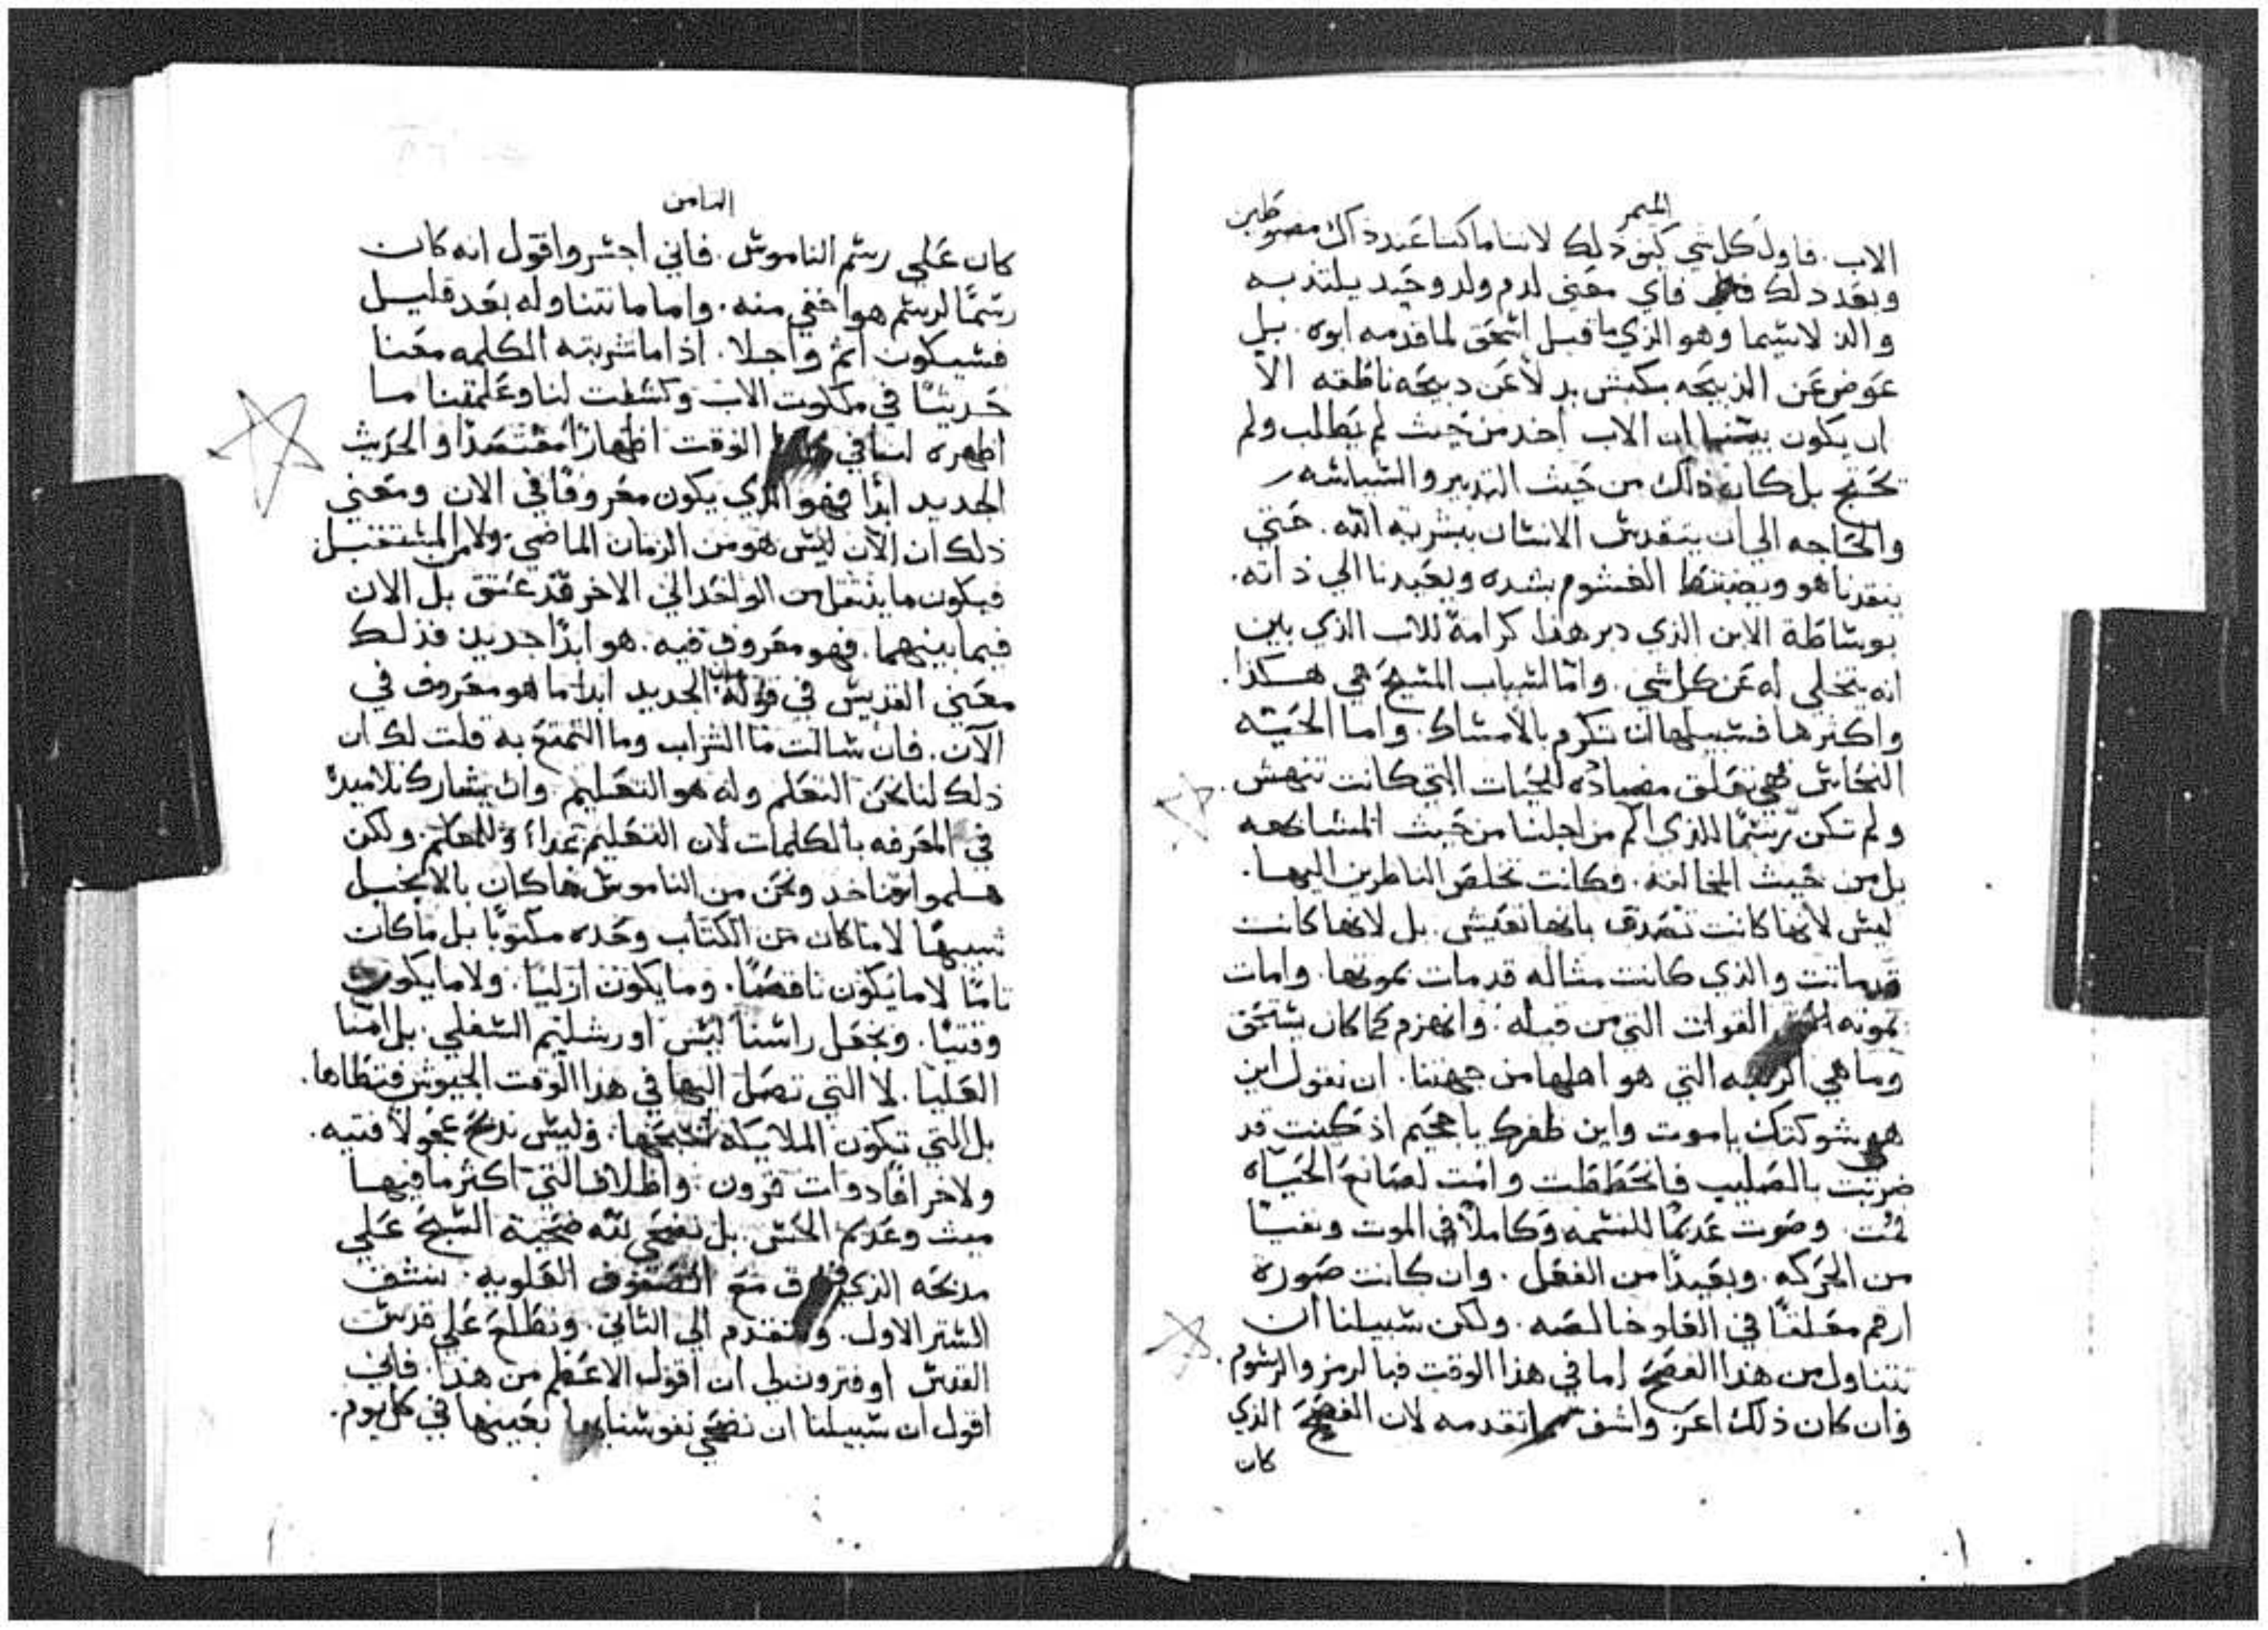 الميمر
الاب. فاول كل شي كيف ذلك لاننا ما كنا عند ذاك مضبوطين
وبعد ذلك فاي معني لدم ولد وحيد يلتذ به
والد لاسيما وهو الذي ما قبل اسحق لما قدمه ابوه. بل
عوض عن الذبيحه بكبش بدلاً عن دبيحه ناطقه الا
ان يكون بيننا ان الاب اخد من حيث لم يطلب ولم
يحتج بل كان ذاك من حيث التدبير والسياسه
والحاجه الي ان يتقدس الانسان ببشرية الله. حتي
ينقدنا هو ويضبط الغشوم بشده ويعيدنا الي ذاته.
بوساطة الابن الذي دبر هذا كرامة للاب الذي يبين
انه يتخلي له عن كل شي. واما اسباب المسيح هي هكذا.
واكثرها فسبيلها ان تكرم بالامساك. واما الحيه
النحاس فهي تعلق مضاده للحيات التي كانت تنهش.
ولم تكن رسماً للذي الم من اجلنا من حيث المشابهه
بل من حيث المخالفه. وكانت تخلص الناظرين اليها.
ليس لانها كانت تصدق بانها تعيش. بل لانها كانت
قد ماتت والذي كانت مثاله قد مات بموتها. وامات
بموته القوات التي من قبله. وانهزم كما كان يستحق
وما هي المرتبه التي هو اهلها من جهتنا. ان نقول اين
هي شوكتك ياموت واين ظفرك ياجحيم اذ كنت قد
ضربت بالصليب فانحططت وامت لصانع الحياه
فمت. وصرت عديماً للنسمه وكاملاً في الموت ونفسا
من الحركه. وبعيداً من الفعل. وان كانت صورة
ارقم معلقاً في العلو خالصه. ولكن سبيلنا ان
نتناول من هذا الفصح اما في هذا الوقت فبالرمز والرسوم.
وان كان ذلك اعز واشف مما تقدمه لان الفصح الذي
كان
الثامن
كان علي رسم الناموس. فاني اجسر واقول انه كان
رسماً لرسم هو اخفي منه. واما ما نتناوله بعد قليل
فسيكون اتم واجلا. اذا ما شربته الكلمه معنا
حديثاً في ملكوت الاب وكشفت لنا وعلمتنا ما
اظهره لنا في الوقت اظهاراً مقتصداً والحديث
الجديد ابداً فهو الذي يكون معروفاً في الان ومعني
ذلك ان الآن ليس هو من الزمان الماضي ولا من المستقبل
فيكون ما ينتقل من الواحد الي الاخر قد عتق بل الان
فيما بينهما. فهو معروف فيه. هو ابداً جديد فذلك
معني القديس في قوله الجديد ابداً ما هو معروف في
الآن. فان سالت ما الشراب وما التمتع به قلت لك ان
ذلك لنا نحن التعلم وله هو التعليم وان يشارك تلاميذه
في المعرفه بالكلمات لان التعليم غداء وللمعلم ولكن
هلموا فناخد ونحن من الناموس ما كان بالانجيل
شبيهاً لا ما كان من الكتاب وحده مكتوباً بل ما كان
تاماً لا ما يكون ناقصاً. وما يكون ازلياً. ولا ما يكون
وقتياً. ونجعل راسنا ليس اورشليم السفلي. بل امنا
العليا. لا التي تصل اليها في هذا الوقت الجيوش فتطاها.
بل التي تكون الملايكه تسبحها. وليس ندبح عجولا فتيه.
ولا خرافاً دوات قرون. واظلاف التي اكثر ما فيها
ميت وعديم الحس. بل نضحي لله ضحية التسبيح علي
مدبحه الذي فوق مع الصفوف العلويه. نشف
الستر الاول. ونتقدم الي الثاني. ونطلع علي قدس
القدس او فترون لي ان اقول الاعظم من هذا. فاني
اقول ان سبيلنا ان نضحي نفوسنا بعينها في كل يوم.